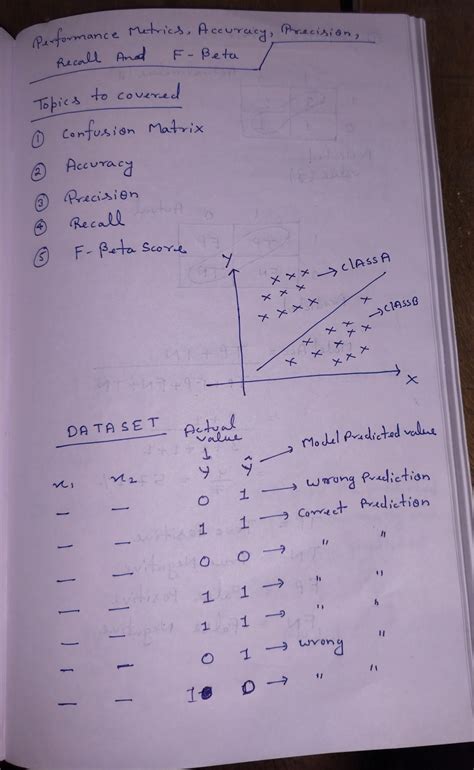 Performance Metrics, Accuracy, Precision,
Recall And F-Beta
Topics to covered
① Confusion Matrix
② Accuracy
③ Precision
④ Recall
⑤ F-Beta Score
y
→ CLASS A
→ CLASS B
x
DATASET Actual value
→ Model Predicted value
x₁ x₂ y ŷ
— — 0 1 → Wrong Prediction
— — 1 1 → Correct Prediction
— — 0 0 → " "
— — 1 1 → " "
— — 1 1 → " "
— — 0 1 → Wrong "
— — 1 0 → " "